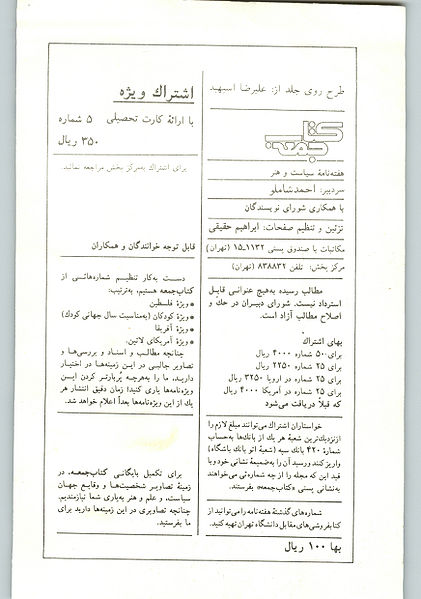 طرح روی جلد از: علیرضا اسپهبد
کتاب جمعه
هفته‌نامهٔ سیاست و هنر
سردبیر: احمد شاملو
با همکاری شورای نویسندگان
تزئین و تنظیم صفحات: ابراهیم حقیقی
مکاتبات با صندوق پستی ۱۱۳۲-۱۵ (تهران)
مرکز پخش: تلفن ۸۳۸۸۳۲ (تهران)
مطالب رسیده به‌هیچ عنوانی قابل
استرداد نیست. شورای دبیران در حك و
اصلاح مطالب آزاد است.
بهای اشتراك
برای ۵۰ شماره ۴۰۰۰ ریال
برای ۲۵ شماره ۲۲۵۰ ریال
برای ۲۵ شماره در اروپا ۳۲۵۰ ریال
برای ۲۵ شماره در آمریکا ۴۰۰۰ ریال
که قبلاً دریافت می‌شود
خواستاران اشتراك می‌توانند مبلغ لازم را
ازنزدیك‌ترین شعبهٔ هر یك از بانك‌ها به‌حساب
شمارهٔ ۴۲۰ بانك سپه (شعبهٔ اتو بانك باشگاه)
واریز کنند و رسید آن را به‌ضمیمهٔ نشانی خود و با
قید این که مجله را از چه شماره‌ئی می‌خواهند
به‌نشانی پستی «کتاب‌جمعه» بفرستند.
شماره‌های گذشتهٔ هفته‌نامه را می‌توانید از
کتابفروشی‌های مقابل دانشگاه تهران تهیه کنید.
بها ۱۰۰ ریال
اشتراك ویژه
با ارائهٔ کارت تحصیلی ۵ شماره
۳۵۰ ریال
برای اشتراك به‌مرکز پخش مراجعه نمائید
قابل توجه خوانندگان و همکاران
دست به‌کار تنظیم شماره‌هائی از
کتاب‌جمعه هستیم، به‌ترتیب:
• ویژهٔ فلسطین
• ویژهٔ کودکان (به‌مناسبت سال جهانی کودك)
• ویژهٔ آفریقا
• ویژهٔ آمریکای لاتین.
چنانچه مطالب و اسناد و بررسی‌ها و
تصاویر جالبی در این زمینه‌ها در اختیار
دارید، ما را به‌هرچه پُربارتر کردن این
ویژه‌نامه‌ها یاری کنید! زمان دقیق انتشار هر
یك از این ویژه‌نامه‌ها بعداً اعلام خواهد شد.
برای تکمیل بایگانی کتاب‌جمعه، در
زمینهٔ تصاویر شخصیت‌ها و وقایع جهان
سیاست، و علم و هنر به‌یاری شما نیازمندیم.
چنانچه تصاویری در این زمینه‌ها دارید برای
ما بفرستید.